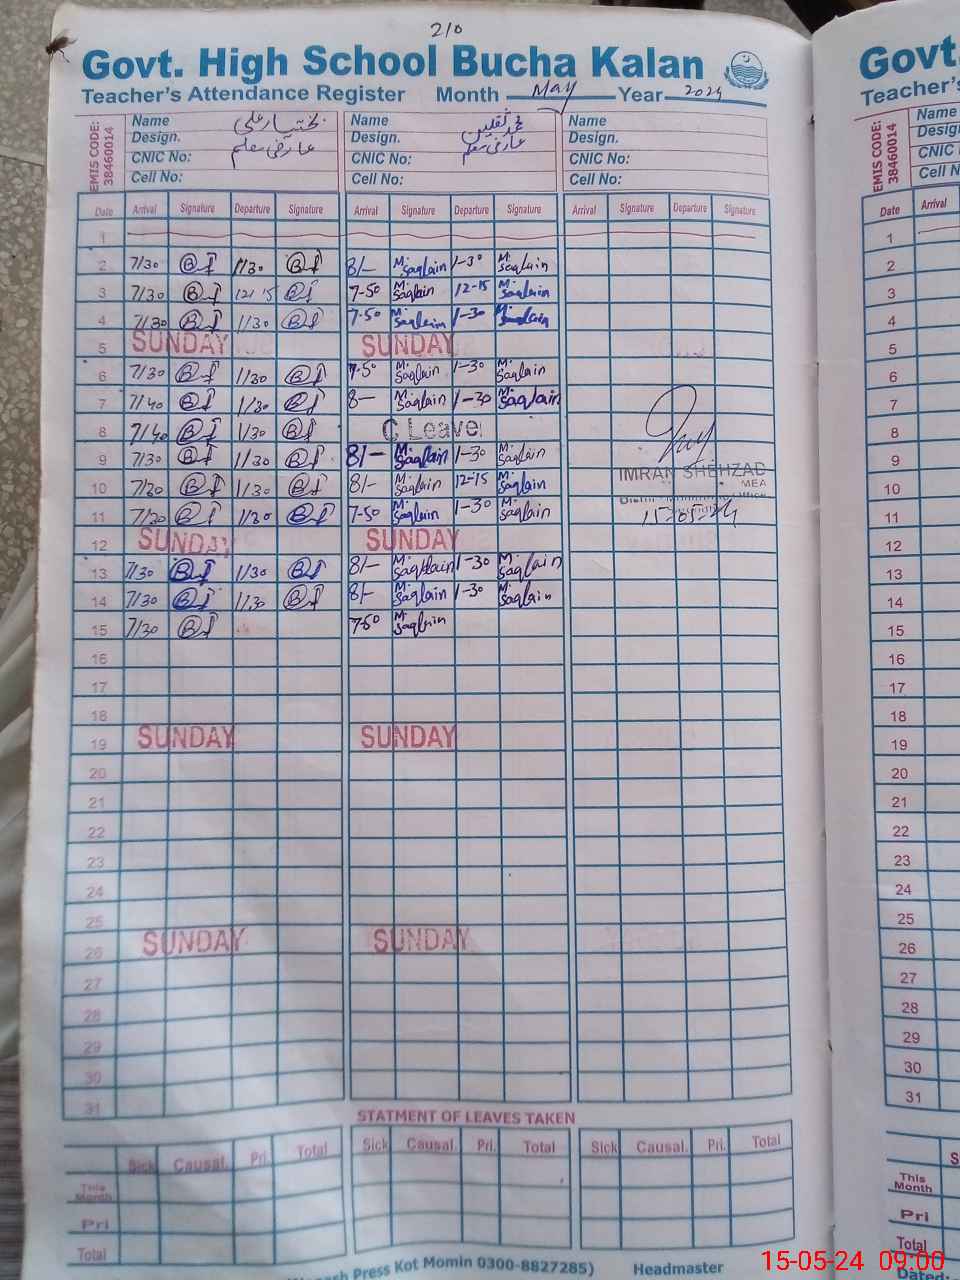 210
Govt. High School Bucha Kalan
Teacher's Attendance Register Month May Year 2024
EMIS CODE: 38460014
Name بختیار علی Name محمد ثقلین Name
Design. عارضی معلم Design. عارضی معلم Design.
CNIC No: CNIC No: CNIC No:
Cell No: Cell No: Cell No:
Date Arrival Signature Departure Signature Arrival Signature Departure Signature Arrival Signature Departure Signature
1
2 7/30 1/30 8/- M. Saqlain 1-30 M. Saqlain
3 7/30 12/15 7-50 M. Saqlain 12-15 M. Saqlain
4 7/30 1/30 7-50 M. Saqlain 1-30 M. Saqlain
5 SUNDAY SUNDAY
6 7/30 1/30 7-50 M. Saqlain 1-30 M. Saqlain
7 7/40 1/30 8- M. Saqlain 1-30 M. Saqlain
8 7/40 1/30 C Leave
9 7/30 1/30 8/- M. Saqlain 1-30 M. Saqlain
10 7/30 1/30 8/- M. Saqlain 12-15 M. Saqlain
IMRAN SHEHZAD
MEA
11 7/30 1/30 7-50 M. Saqlain 1-30 M. Saqlain
15-05-24
12 SUNDAY SUNDAY
13 7/30 1/30 8/- M. Saqlain 1-30 M. Saqlain
14 7/30 1/30 8/- M. Saqlain 1-30 M. Saqlain
15 7/30 7-50 M. Saqlain
16
17
18
19 SUNDAY SUNDAY
20
21
22
23
24
25
26 SUNDAY SUNDAY
27
28
29
30
31
STATMENT OF LEAVES TAKEN
Sick Causal. Pri. Total Sick Causal. Pri. Total Sick Causal. Pri. Total
This Month
Pri
Total
Press Kot Momin 0300-8827285) Headmaster
Govt.
Teacher's
EMIS CODE: 38460014
Name
Design
CNIC
Cell N
Date Arrival
1
2
3
4
5
6
7
8
9
10
11
12
13
14
15
16
17
18
19
20
21
22
23
24
25
26
27
28
29
30
31
This Month
Pri
Total
Dated:
15-05-24 09:00